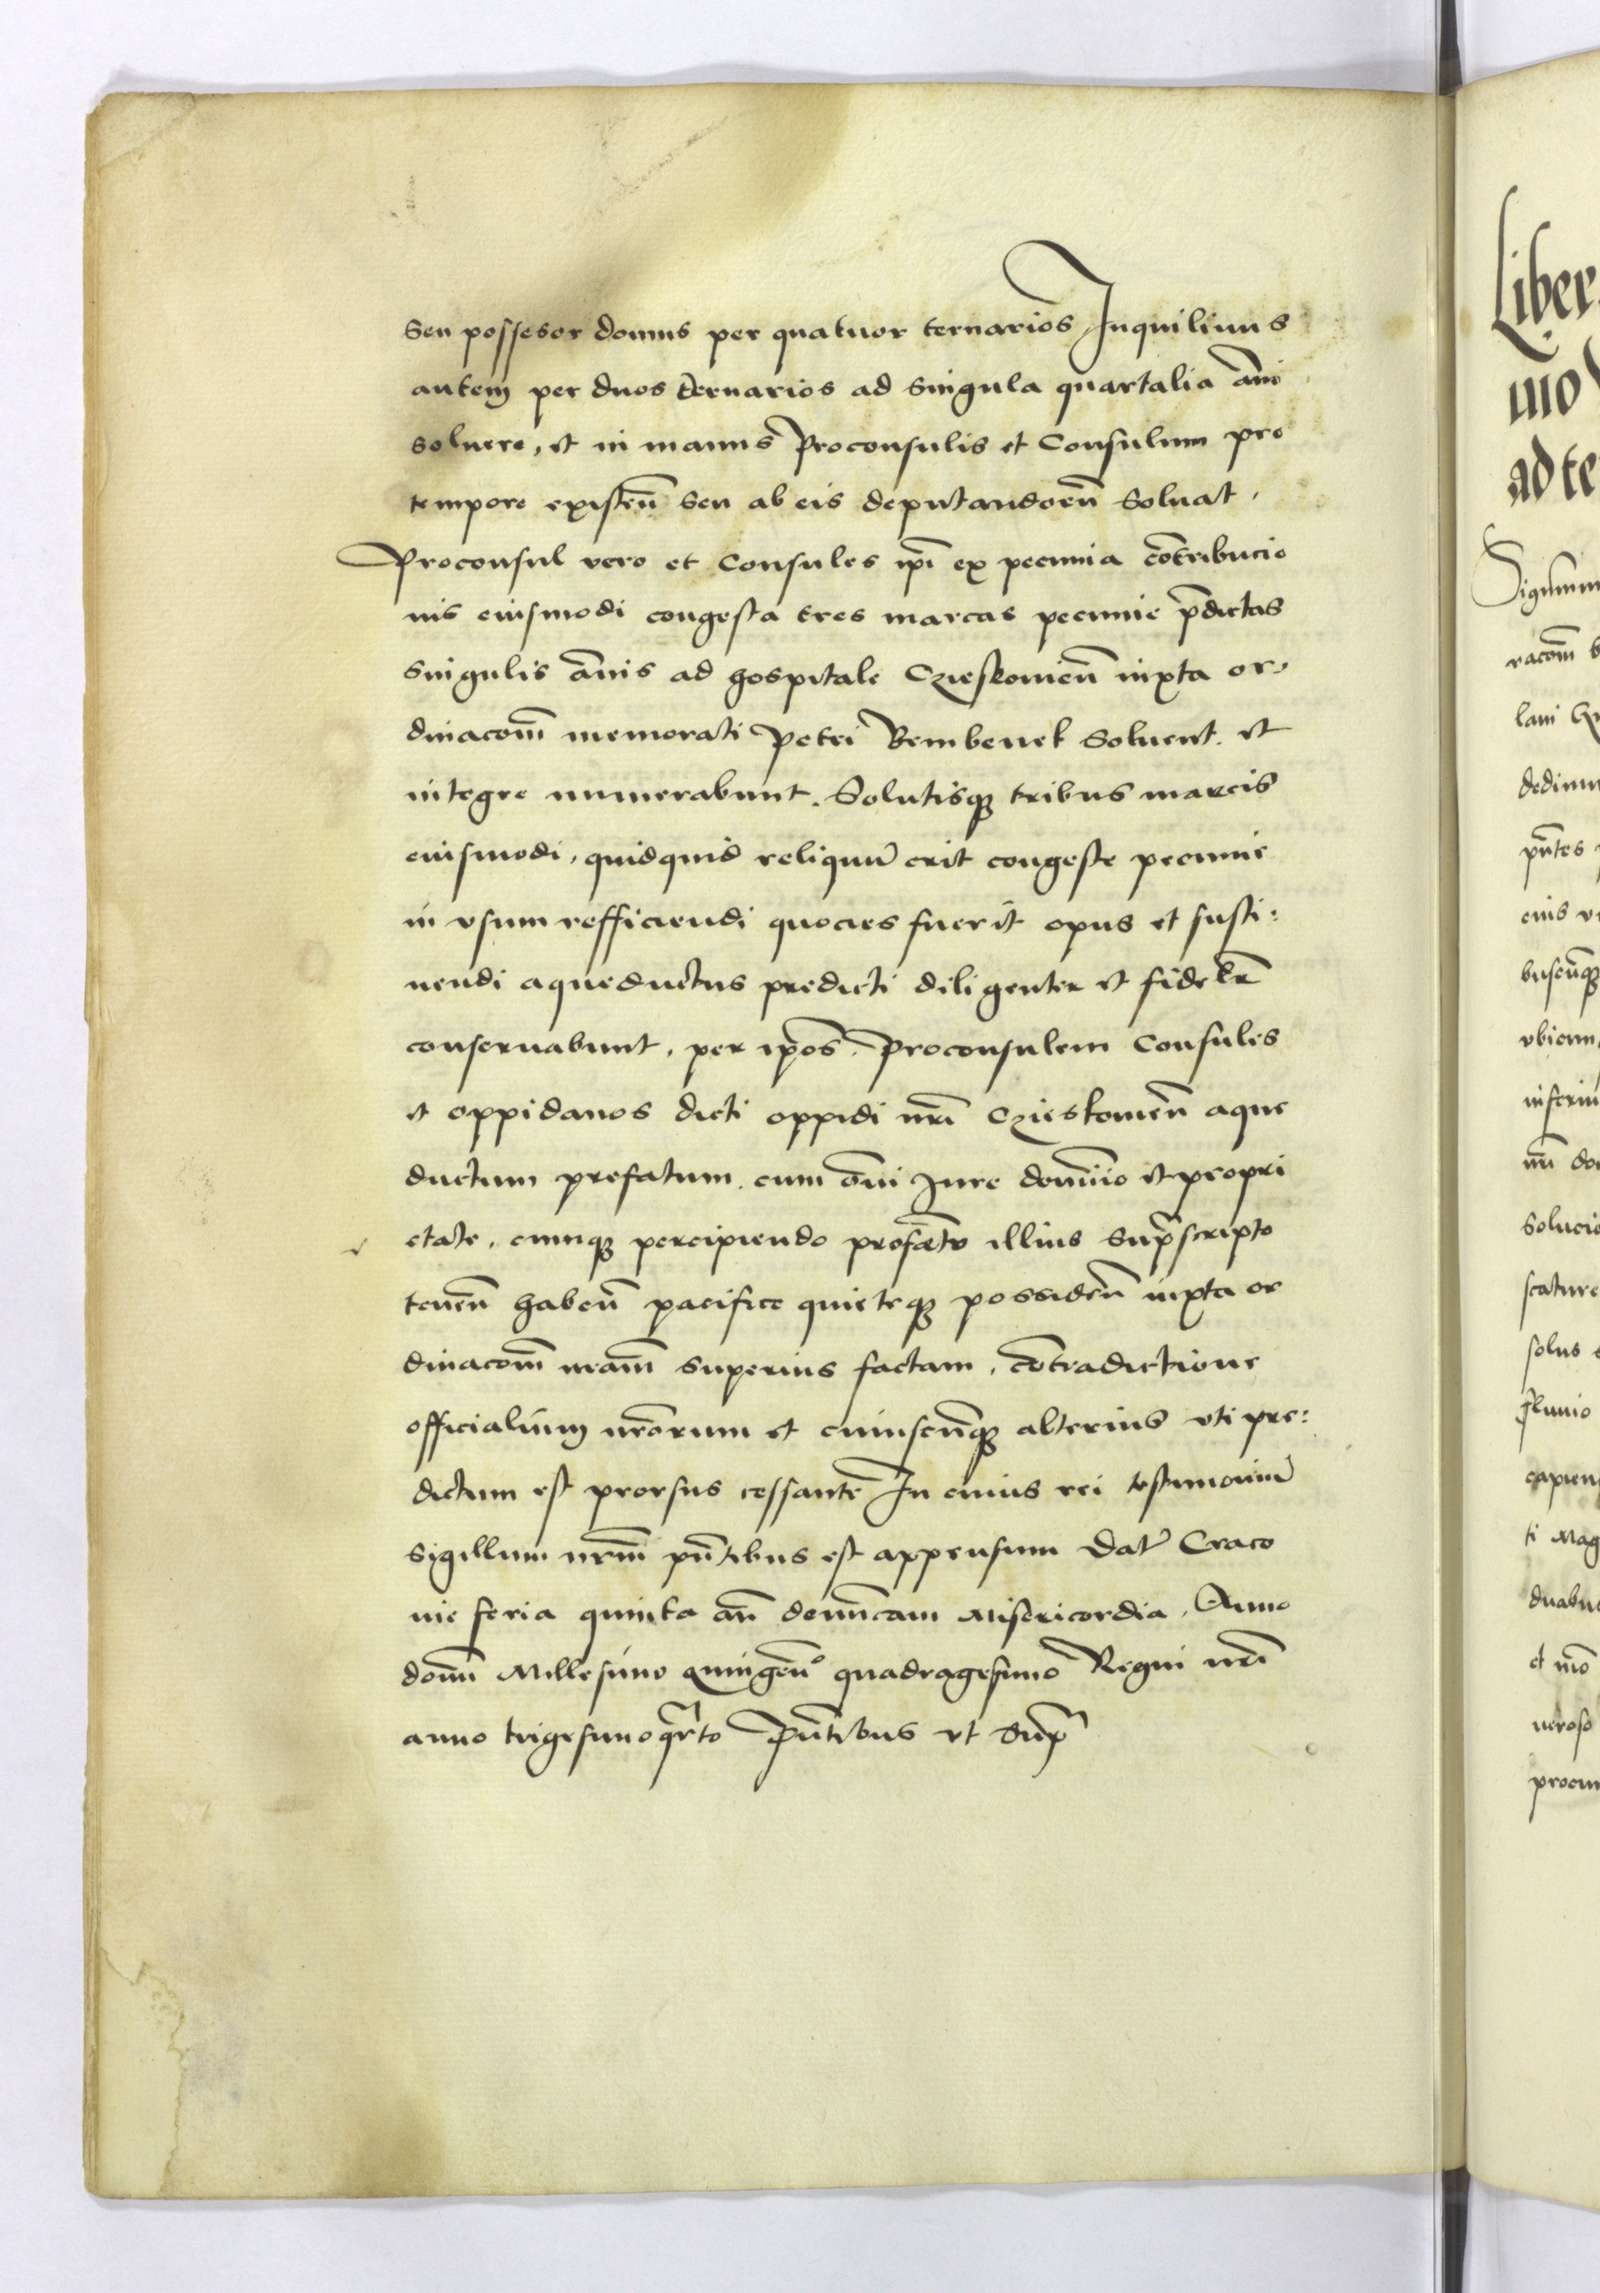 Seu possesor domus per quatuor ternarios Inquilinus
autem per duos ternarios ad singula quartalia añi
soluere, et in manus Proconsulis et Consulum pro
tempore existeñ seu ab eis deputandoruñ Soluat.
Proconsul vero et Consules ip̄i ex pecunia cōtribucio
nis eiusmodi congesta tres marcas pecunie p̄dictas
singulis añis ad hospitale Czieskonieñ iuxta or-
dinacoēm memorati Petri Bembenek Soluent. et
integre numerabunt. Solutisq3 tribus marcis
eiusmodi, quidquid reliquū erit congeste pecunie
in vsum refficiendi quocies fuerit opus et susti:
nendi aqueductus predicti diligenter et fidelr̄
conseruabunt, per ip̄os. Proconsulem Consules
et oppidanos dicti oppidi nr̄i Czieskonieñ aque
ductum prefatum. cum om̄i Jure dominio et propri
etate. cumq3 percipiendo profectu illius supͣscripto
teneñ habeñ pacifice quieteq3 possideñ iuxta or
dinacoēm nr̄am superius factam. cōtradictione
officialium nr̄orum et cuiuscūq3 alterius vti pre:
dictum est prorsus cessante In cuius rei testimoniū
sigillum nr̄m pñtibus est appensum Dat̄ Craco
uie feria quinta añ domīcam Misericordia. Anno
domī Millesimo quingeñᵒ quadragesimo Regni nr̄i
anno trigesimoqͣrto Pñtibus vt Supͣ
Liber
ad te
lani
dedimu
pñtes
eius
vbicum
solucio
scature
solus
fluuio
capien
ti Mag
duabu
neroso